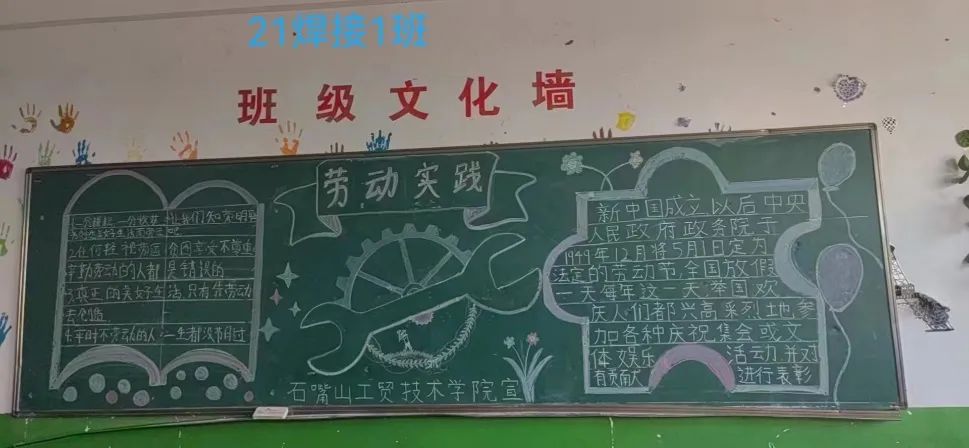 21焊接1班
班级文化墙
劳动实践
让我们知荣明
2.在何
辛勤劳动的人都是错误的
3.真正的美好生活,只有靠劳动
去创造
4.平时不劳动的人,一生都没有节过
石嘴山工贸技术学院宣
新中国成立以后中央
人民政府政务院于
1949年12月将5月1日定为
法定的劳动节,全国放假
一天每年这一天举国欢
庆人们都兴高采烈地参
加各种庆祝集会或文
体娱乐活动并对
有贡献进行表彰